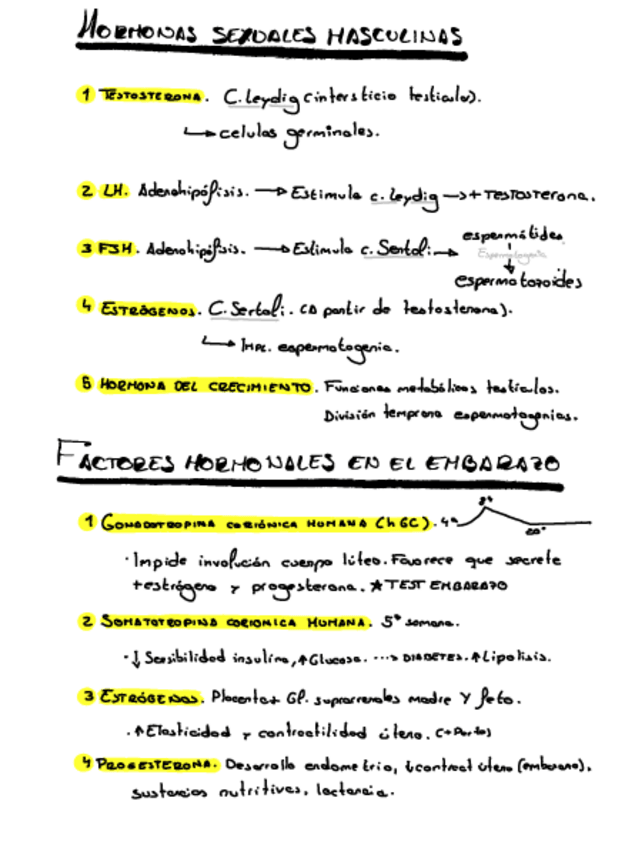 HORMONAS SEXUALES MASCULINAS
1 TESTOSTERONA. C. Leydig (intersticio testicular).
↳ celulas germinales.
2 LH. Adenohipófisis. → Estimula c. Leydig → + TESTOSTERONA.
3 FSH. Adenohipófisis. → Estimula c. Sertoli → espermátides
Espermatogenia
espermatozoides
4 ESTRÓGENOS. C. Sertoli. (A partir de testosterona).
↳ Imp. espermatogenia.
5 HORMONA DEL CRECIMIENTO. Funciones metabólicas testículos.
División temprana espermatogonias.
FACTORES HORMONALES EN EL EMBARAZO
1 GONADOTROPINA CORIÓNICA HUMANA (hGC). 4ª 8ª 20ª
· Impide involución cuerpo lúteo. Favorece que secrete
+estrógeno y progesterona. ★ TEST EMBARAZO
2 SOMATOTROPINA CORIONICA HUMANA. 5ª semana.
· ↓ Sensibilidad insulina, ↑ Glucosa. ⇢ DIABETES. ↑ Lipolisis.
3 ESTRÓGENOS. Placenta + Gl. suprarrenales madre y feto.
· ↑ Elasticidad y contractilidad útero. (+ Parto)
4 PROGESTERONA. Desarrollo endometrio, ↓ contract útero (embarazo),
sustancias nutritivas, lactancia.